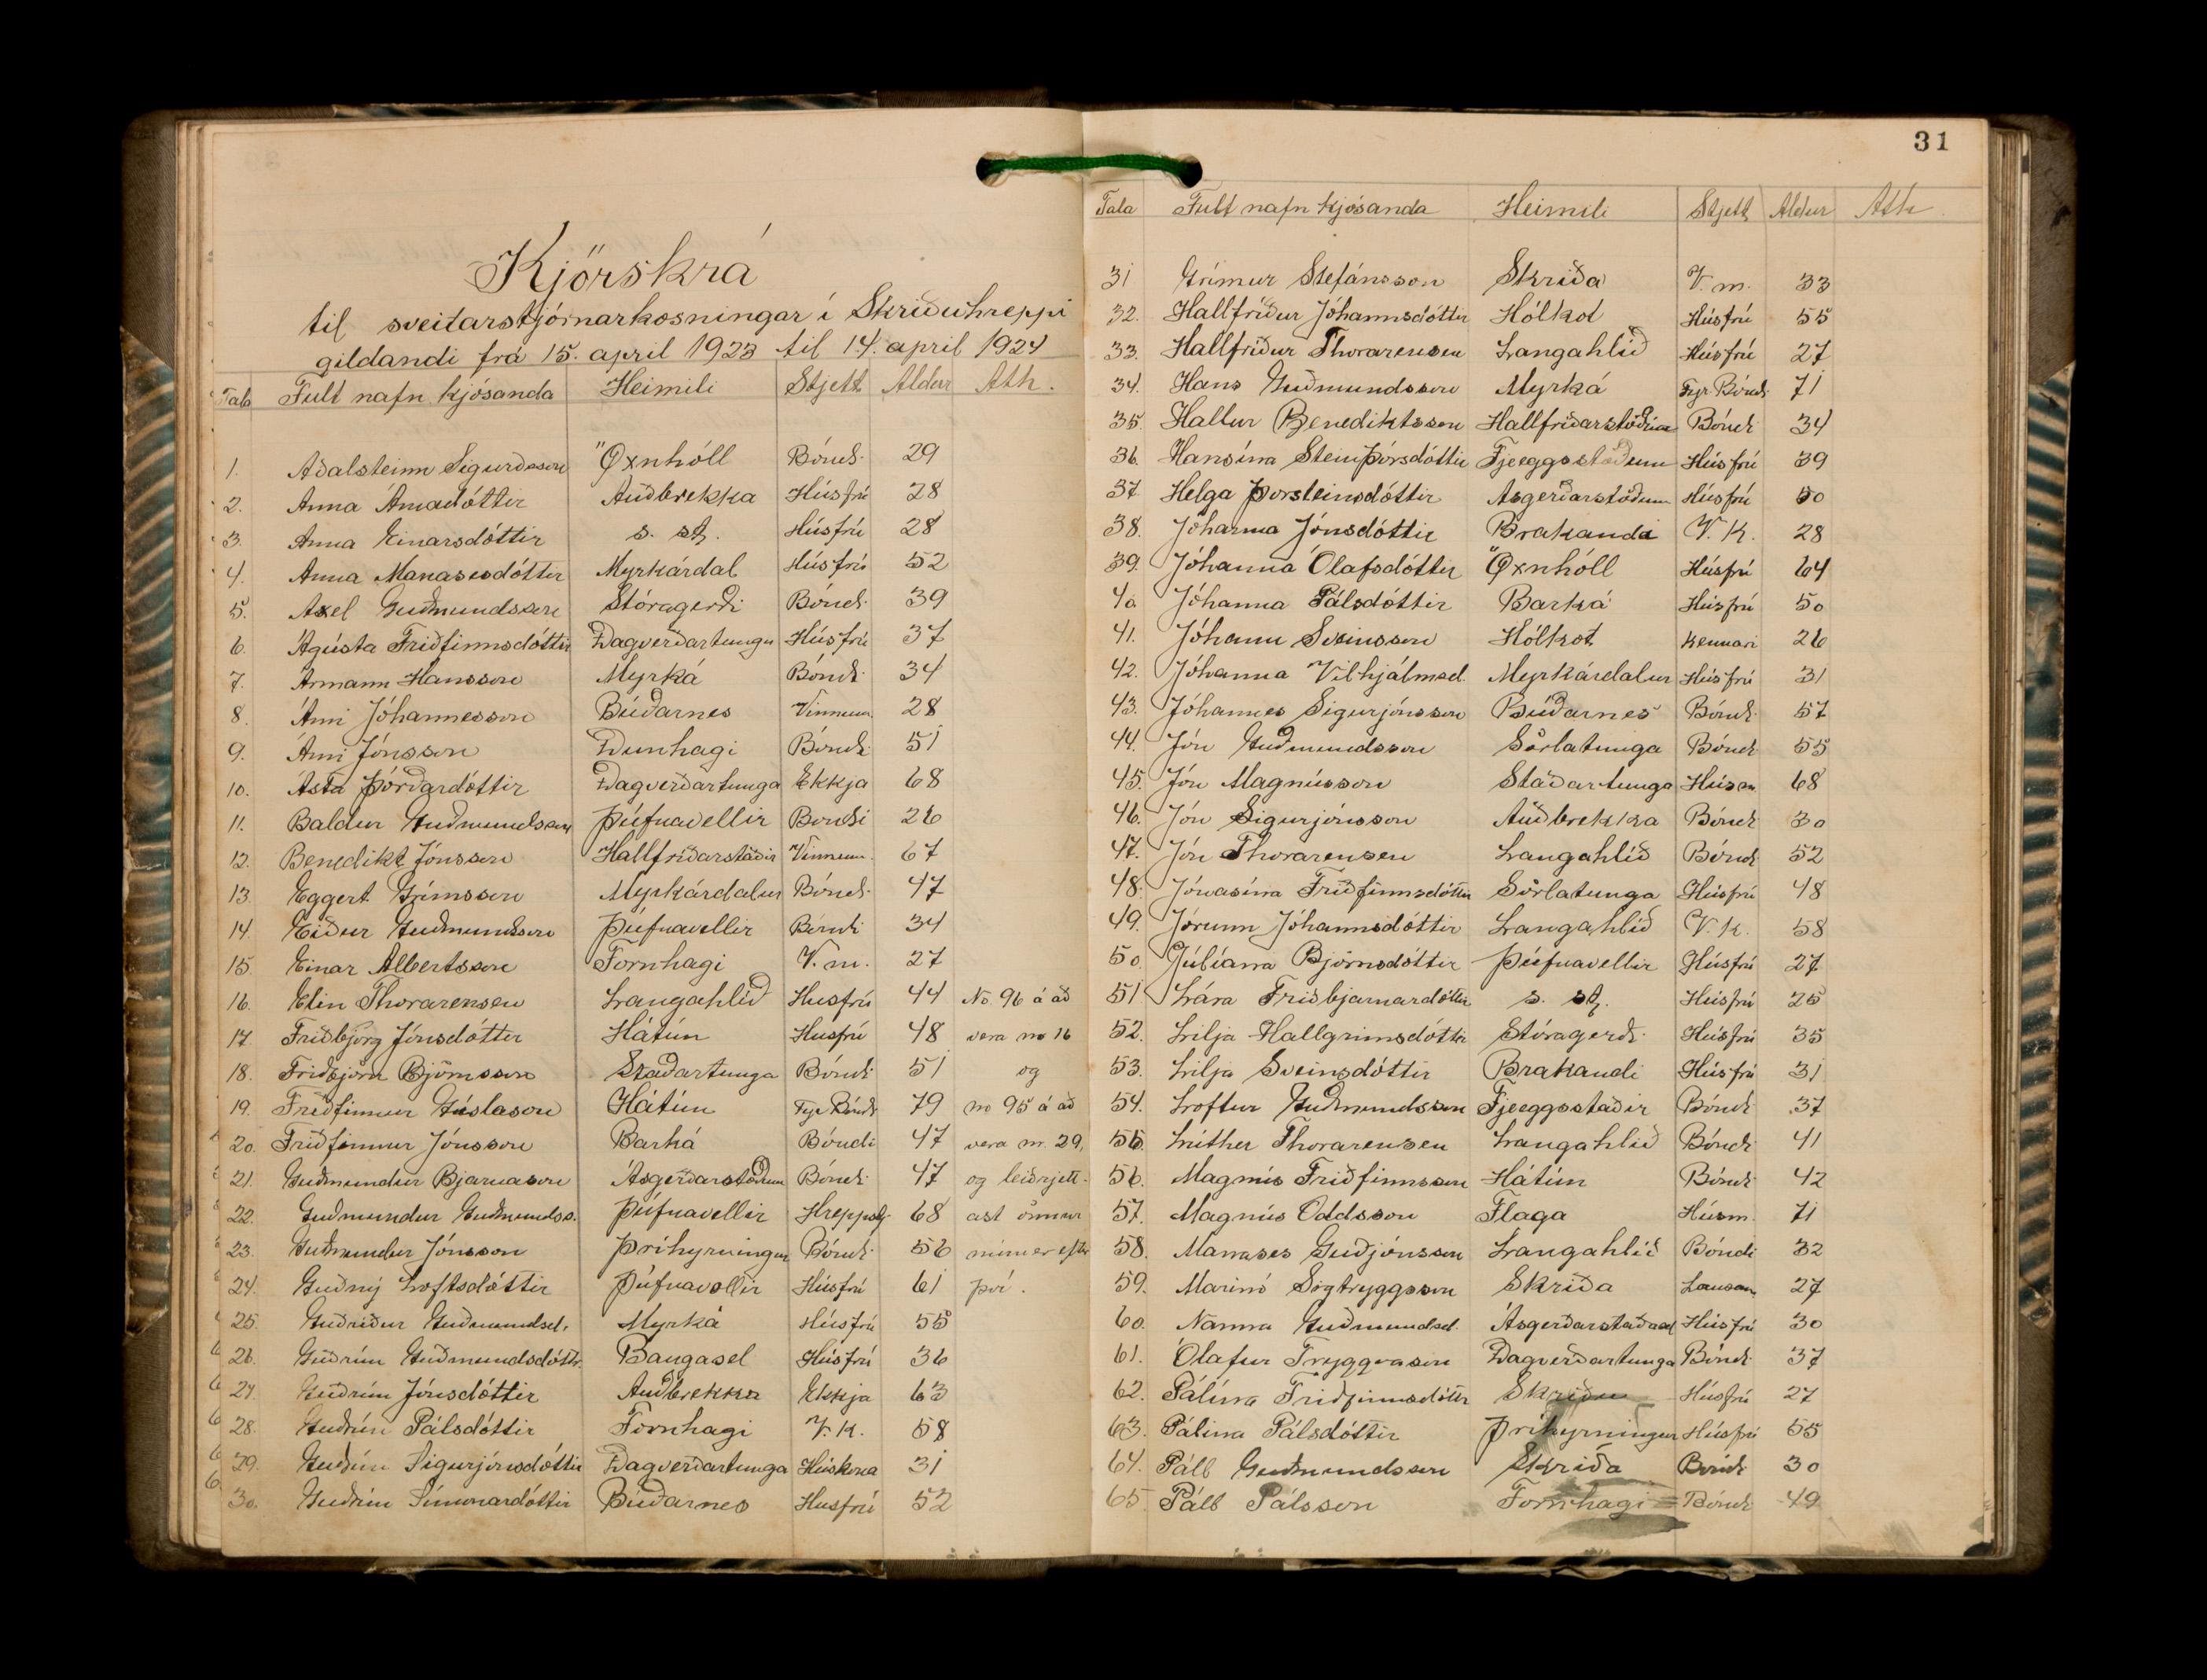 Kjörskrá
til sveitarstjórnarkosningar í Skriðuhreppi
gildandi frá 15. april 1923 til 14. april 1924
Tala Fult nafn kjósanda Heimili Stjett Aldur Ath.
1. Aðalsteinn Sigurðsson Öxnhóll Bóndi 29
2. Anna Árnadóttir Auðbrekka Húsfrú 28
3. Anna Einarsdóttir s. st. Húsfrú 28
4. Anna Manasesdóttir Myrkárdal Húsfrú 52
5. Axel Guðmundsson Stóragerði Bóndi 39
6. Ágústa Friðfinnsdóttir Dagverðartungu Húsfrú 37
7. Ármann Hansson Myrká Bóndi 34
8. Árni Jóhannesson Búðarnes Vinnum. 28
9. Árni Jónsson Dunhagi Bóndi 51
10. Ásta Þórðardóttir Dagverðartunga Ekkja 68
11. Baldur Guðmundsson Þúfnavellir Bondi 26
12. Benedikt Jónsson Hallfríðarstaðir Vinnum. 67
13. Eggert Grímsson Myrkárdalur Bóndi 47
14. Eiður Guðmundsson Þúfnavellir Bóndi 34
15. Einar Albertsson Fornhagi V. m. 27
16. Elin Thorarensen Langahlíð Husfrú 44 No. 96 á að
17. Friðbjörg Jónsdóttir Hátún Husfrú 48 vera no 16
18. Friðbjörn Björnsson Staðartunga Bóndi 51 og
19. Friðfinnur Gíslason Hátún Fyr. Bóndi 79 no 95 á að
20. Friðfinnur Jónsson Barká Bóndi 47 vera nr. 29,
21. Guðmundur Bjarnason Ásgerðarstöðum Bóndi 47 og leiðrjett-
22. Guðmundur Guðmundss. Þúfnavellir Hreppstj. 68 ast önnur
23. Guðmundur Jónsson Þríhyrningur Bóndi 56 númer eftir
24. Guðný Loftsdóttir Þúfnavellir Húsfrú 61 því.
25. Guðríður Guðmundsd. Myrká Húsfrú 55
26. Guðrún Guðmundsdóttir Baugasel Húsfrú 36
27. Guðrún Jónsdóttir Auðbrekka Ekkja 63
28. Guðrún Pálsdóttir Fornhagi V. K. 58
29. Guðrún Sigurjónsdóttir Dagverðartunga Húskona 31
30. Guðrún Símonardóttir Búðarnes Husfrú 52
31
Tala Fult nafn kjósanda Heimili Stjett Aldur Ath.
31 Grímur Stefánsson Skriða V. m. 33
32. Hallfríður Jóhannsdóttir Hólkot Húsfrú 55
33. Hallfríður Thorarensen Langahlíð Húsfrú 27
34. Hans Guðmundsson Myrká Fyr. Bóndi 71
35. Hallur Benediktsson Hallfríðarstöðum Bóndi 34
36. Hansína Steinþórsdóttir Fjeeggstöðum Húsfrú 39
37. Helga Þorsteinsdóttir Asgerðarstöðum Húsfrú 50
38. Jóhanna Jónsdóttir Brakandi V. K. 28
39. Jóhanna Ólafsdóttir Öxnhóll Húsfrú 64
40. Jóhanna Pálsdóttir Barká Húsfrú 50
41. Jóhann Sveinsson Hólkot Kennari 26
42. Jóhanna Vilhjálmsd. Myrkárdalur Húsfrú 31
43. Jóhannes Sigurjónsson Búðarnes Bóndi 57
44. Jón Guðmundsson Sörlatunga Bóndi 55
45. Jón Magnússon Staðartunga Húsm. 68
46. Jón Sigurjónsson Auðbrekka Bóndi 30
47. Jón Thorarensen Langahlíð Bóndi 52
48. Jónasína Friðfinnsdóttir Sörlatunga Húsfrú 48
49. Jórunn Jóhannsdóttir Langahlíð V. k. 58
50. Júlíana Björnsdóttir Þúfnavellir Húsfrú 27
51 Lára Friðbjarnardóttir s. st. Húsfrú 25
52. Lilja Hallgrimsdóttir Stóragerði Húsfrú 35
53. Lilja Sveinsdóttir Brakandi Húsfrú 31
54. Loftur Guðmundsson Fjeeggsstaðir Bóndi 37
55. Lúther Thorarensen Langahlíð Bóndi 41
56. Magnús Friðfinnsson Hátún Bóndi 42
57. Magnús Oddsson Flaga Húsm. 71
58. Manases Guðjónsson Langahlíð Bóndi 32
59. Marinó Sigtryggsson Skriða Lausam. 27
60. Nanna Guðmundsd. Ásgerðarstaðasel Húsfrú 30
61. Ólafur Tryggvason Dagverðartunga Bóndi 37
62. Pálína Friðfinnsdóttir Skriðu Húsfrú 27
63. Pálina Pálsdóttir Þríhyrningur Húsfrú 55
64. Páll Guðmundsson Skriða Bóndi 30
65. Páll Pálsson Fornhagi Bóndi 49